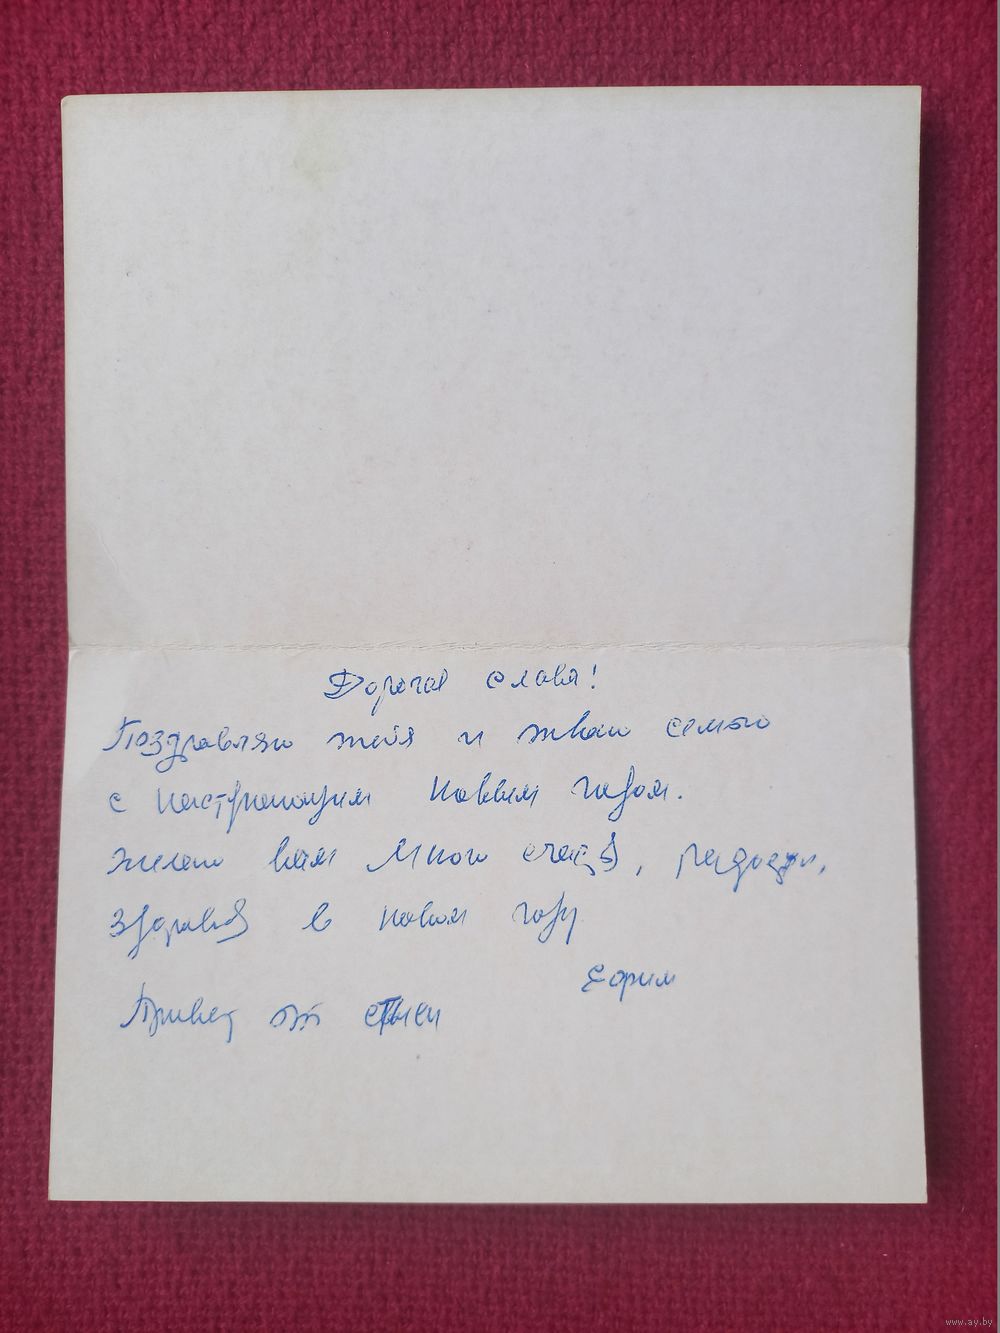 Дорогая Слава!
Поздравляю тебя и твою семью
с наступающим Новым годом.
Желаю вам много счастья, радости,
здравья в новом году
Ефим
Привет от
www.ay.by